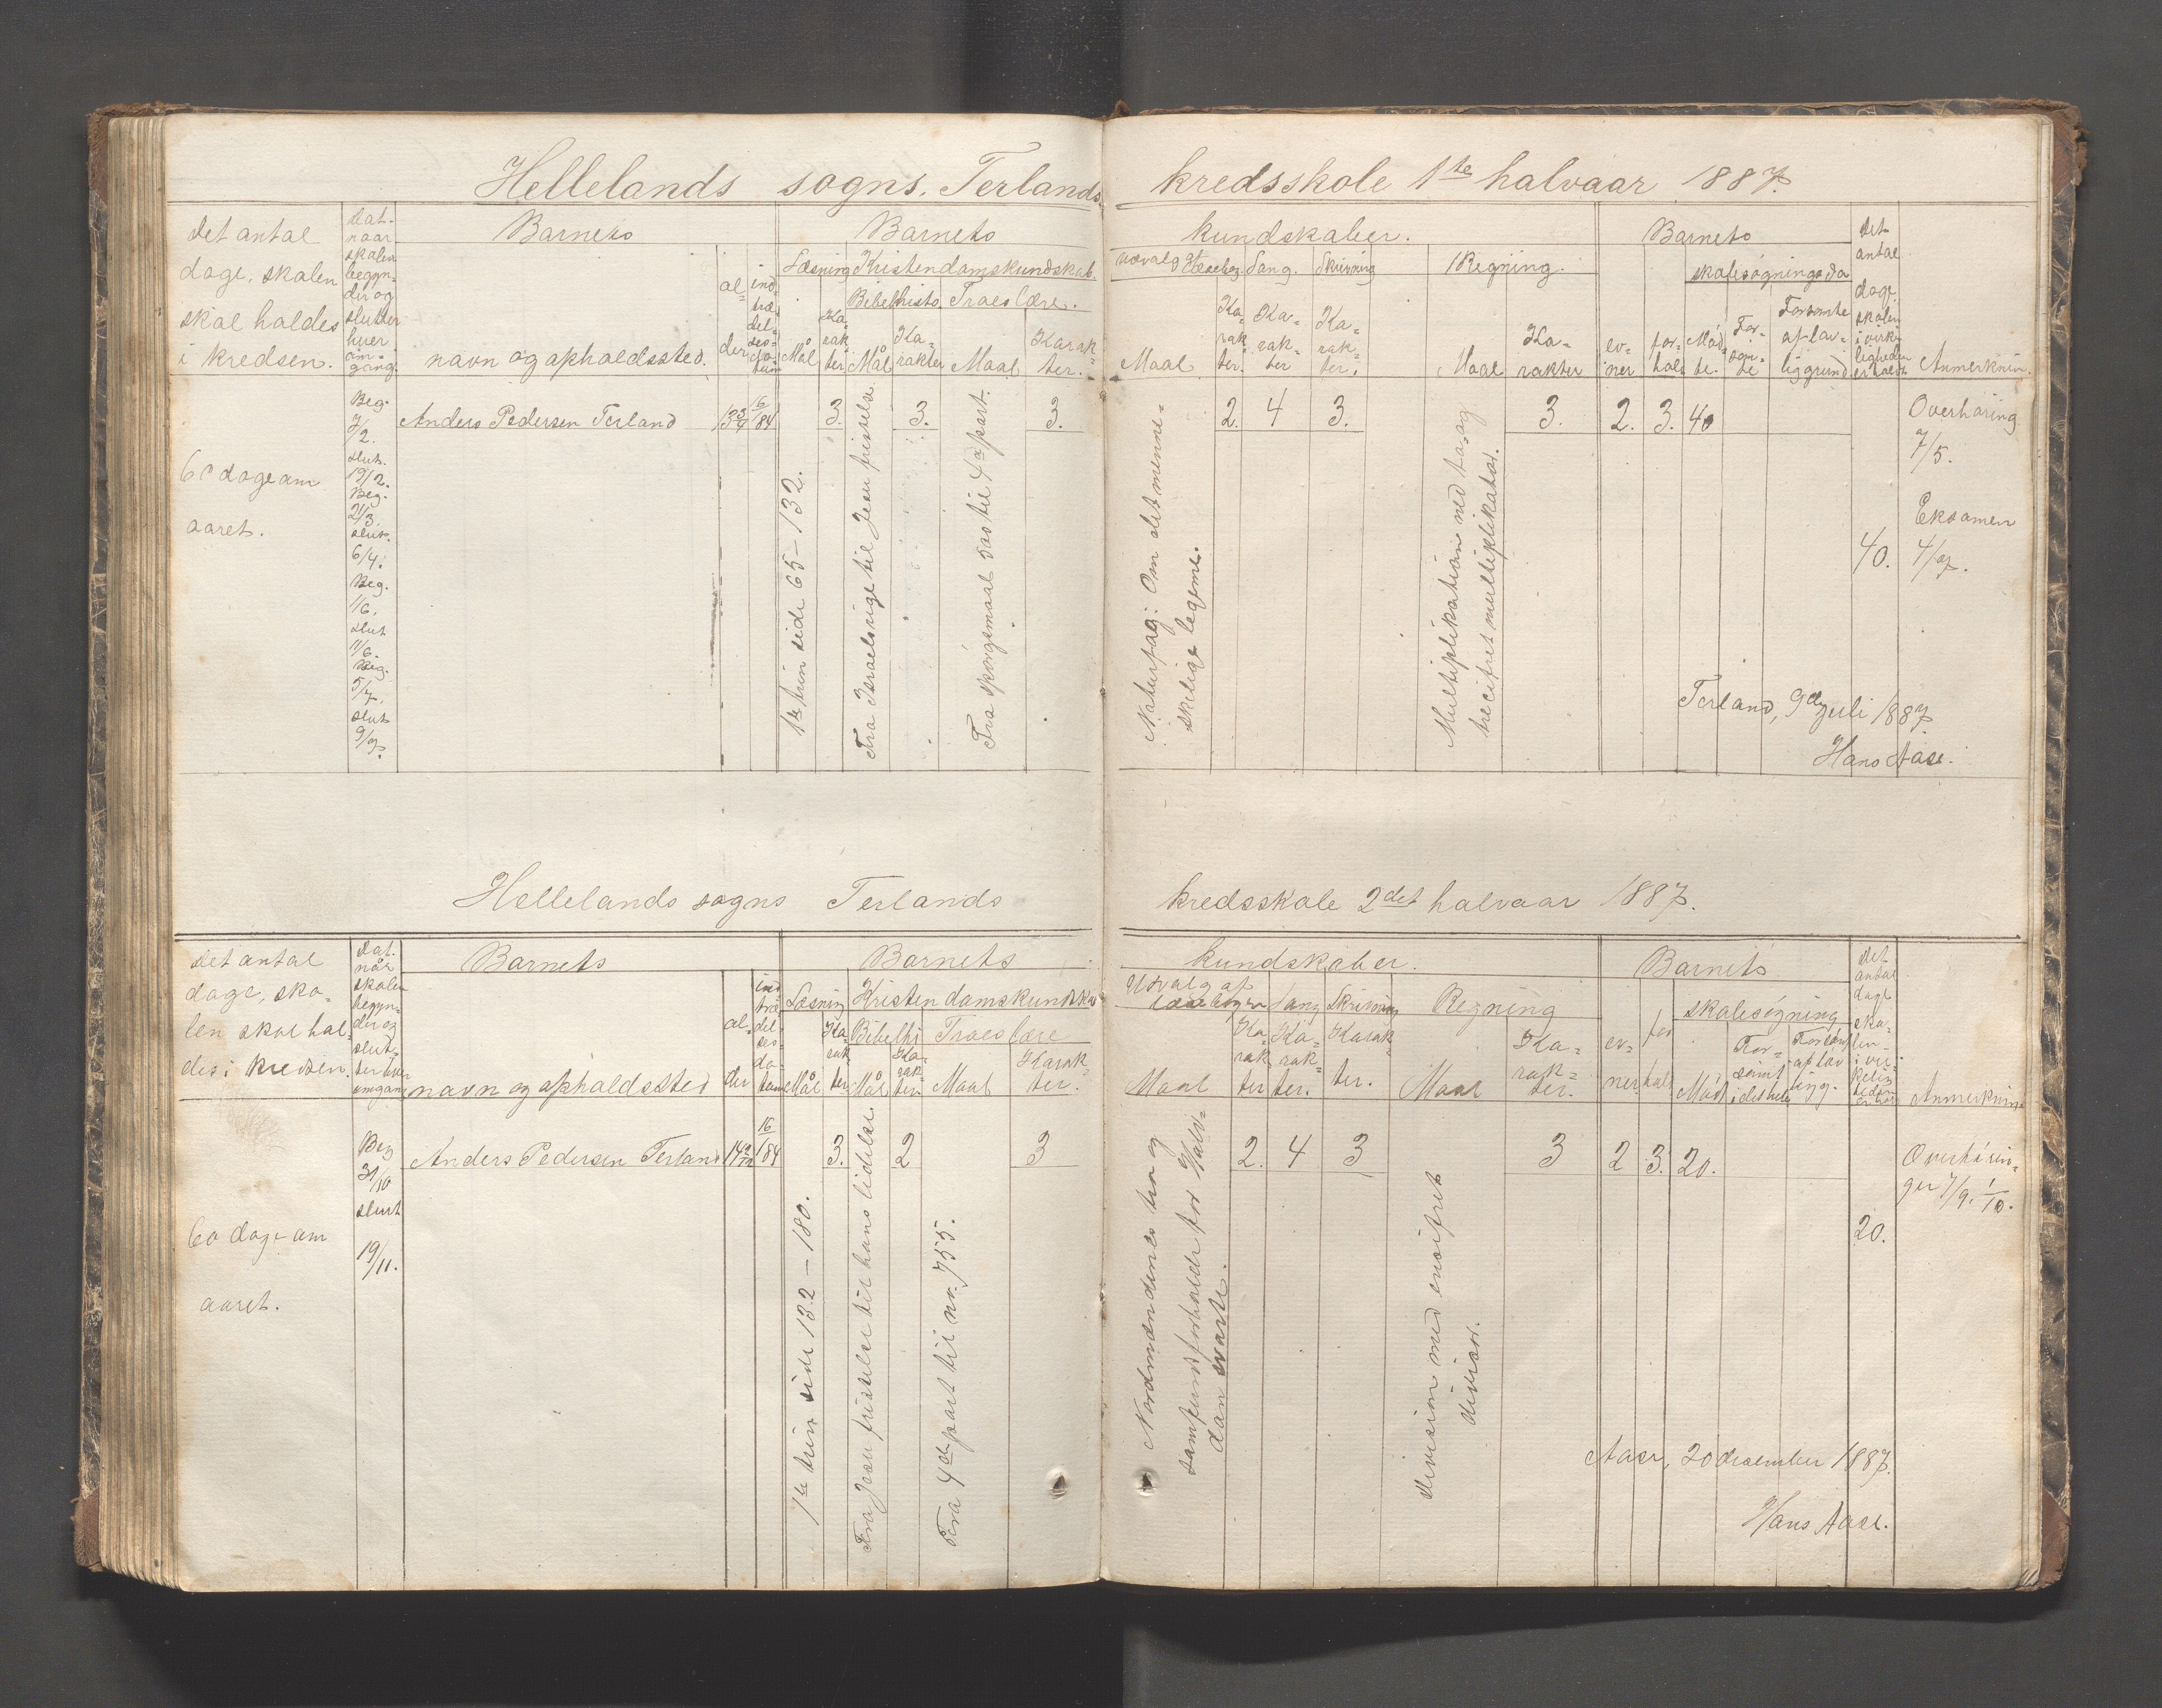 Hellelands sogns. Terlands kredsskole 1ste halvaar 1887.
det antal
dage, skolen
skal holdes
i kredsen.
Dat.
naar
skolen
begyn-
der og
slutter
hver
om-
gang.
Barnets
navn og opholdssted.
al-
der
ind-
træ-
del-
ses-
da-
tum
Barnets kundskaber.
Læsning
Maal
Ka-
rak-
ter
Kristendomskundskab.
Bibelhisto.
Maal
Ka-
rakter
Troeslære.
Maal
Karak-
ter.
Udvalg af Læsebog.
Maal
Ka-
rak-
ter.
Sang.
Ka-
rak-
ter
Skrivning
Ka-
rak-
ter.
Regning.
Maal
Ka-
rakter
Barnets
ev-
ner
for-
hold
skolesøgningsda
Mød-
te.
For-
søm-
te
Forsømte
af lov-
lig grund
det
antal
dage
skolen
i virke-
ligheden
er holdt
Anmerknin.
60 dage om
aaret.
Beg.
7/2.
slut.
19/2.
Beg.
21/3.
slut.
6/4.
Beg.
1/6.
slut
11/6.
Beg.
5/7.
slut
9/7.
Anders Pedersen Terland 16/84 3. 3. 3. 2. 4 3. 3. 2. 3. 40
1ste trin side 65-132.
Fra Israels rige til Jesu fristelse
Fra spørgsmaal 500 til 4de part.
Naturfag: Om det menne-
skelige legeme.
Multiplikation med to og
trecifret multiplikator.
40.
Overhøring
7/5.
Eksamen
4/7.
Terland, 9de juli 1887
Hans Aase.
Hellelands sogns Terlands kredsskole 2det halvaar 1887.
det antal
dage, sko-
len skal hol-
des i kredsen.
Dat.
når
skolen
begyn-
der og
slut-
ter hver
omgang
Barnets
navn og opholdssted
al-
der
ind
træ-
del-
ses-
da-
tum
Barnets kundskaber.
Læsning
Mål
Ka-
rak-
ter
Kristendomskundska
Bibelhi
Mål
Ka-
rak-
ter
Troeslære
Maal
Karak-
ter.
Udvalg af
læsebogen
Maal
Ka-
rak-
ter
Sang
Ka-
rak-
ter.
Skrivning
Karak-
ter.
Regning
Maal
Ka-
rak-
ter.
Barnets
ev-
ner
for
hold
skolesøgning
Mødt
For-
sømt
i det hele
Forsømt
af lov
ligg.
det
antal
dage
sko-
len
i vir-
kelig
heden
er holdt
Anmerknin-
60 dage om
aaret.
Beg
31/10
slut
19/11.
Anders Pedersen Terland 16/84 3. 2 3 2. 4 3 3 2 3. 20.
1ste trin side 132-180.
Fra Jesu fristelse til hans lidelse.
Fra 4de part til nr. 755.
Nordmændenes tro og
samfundsforholde før Halv-
dan svarte.
Division med encifret
divisor.
20.
Overhørin-
ger 7/9. 1/10.
Aase, 20 december 1887.
Hans Aase.